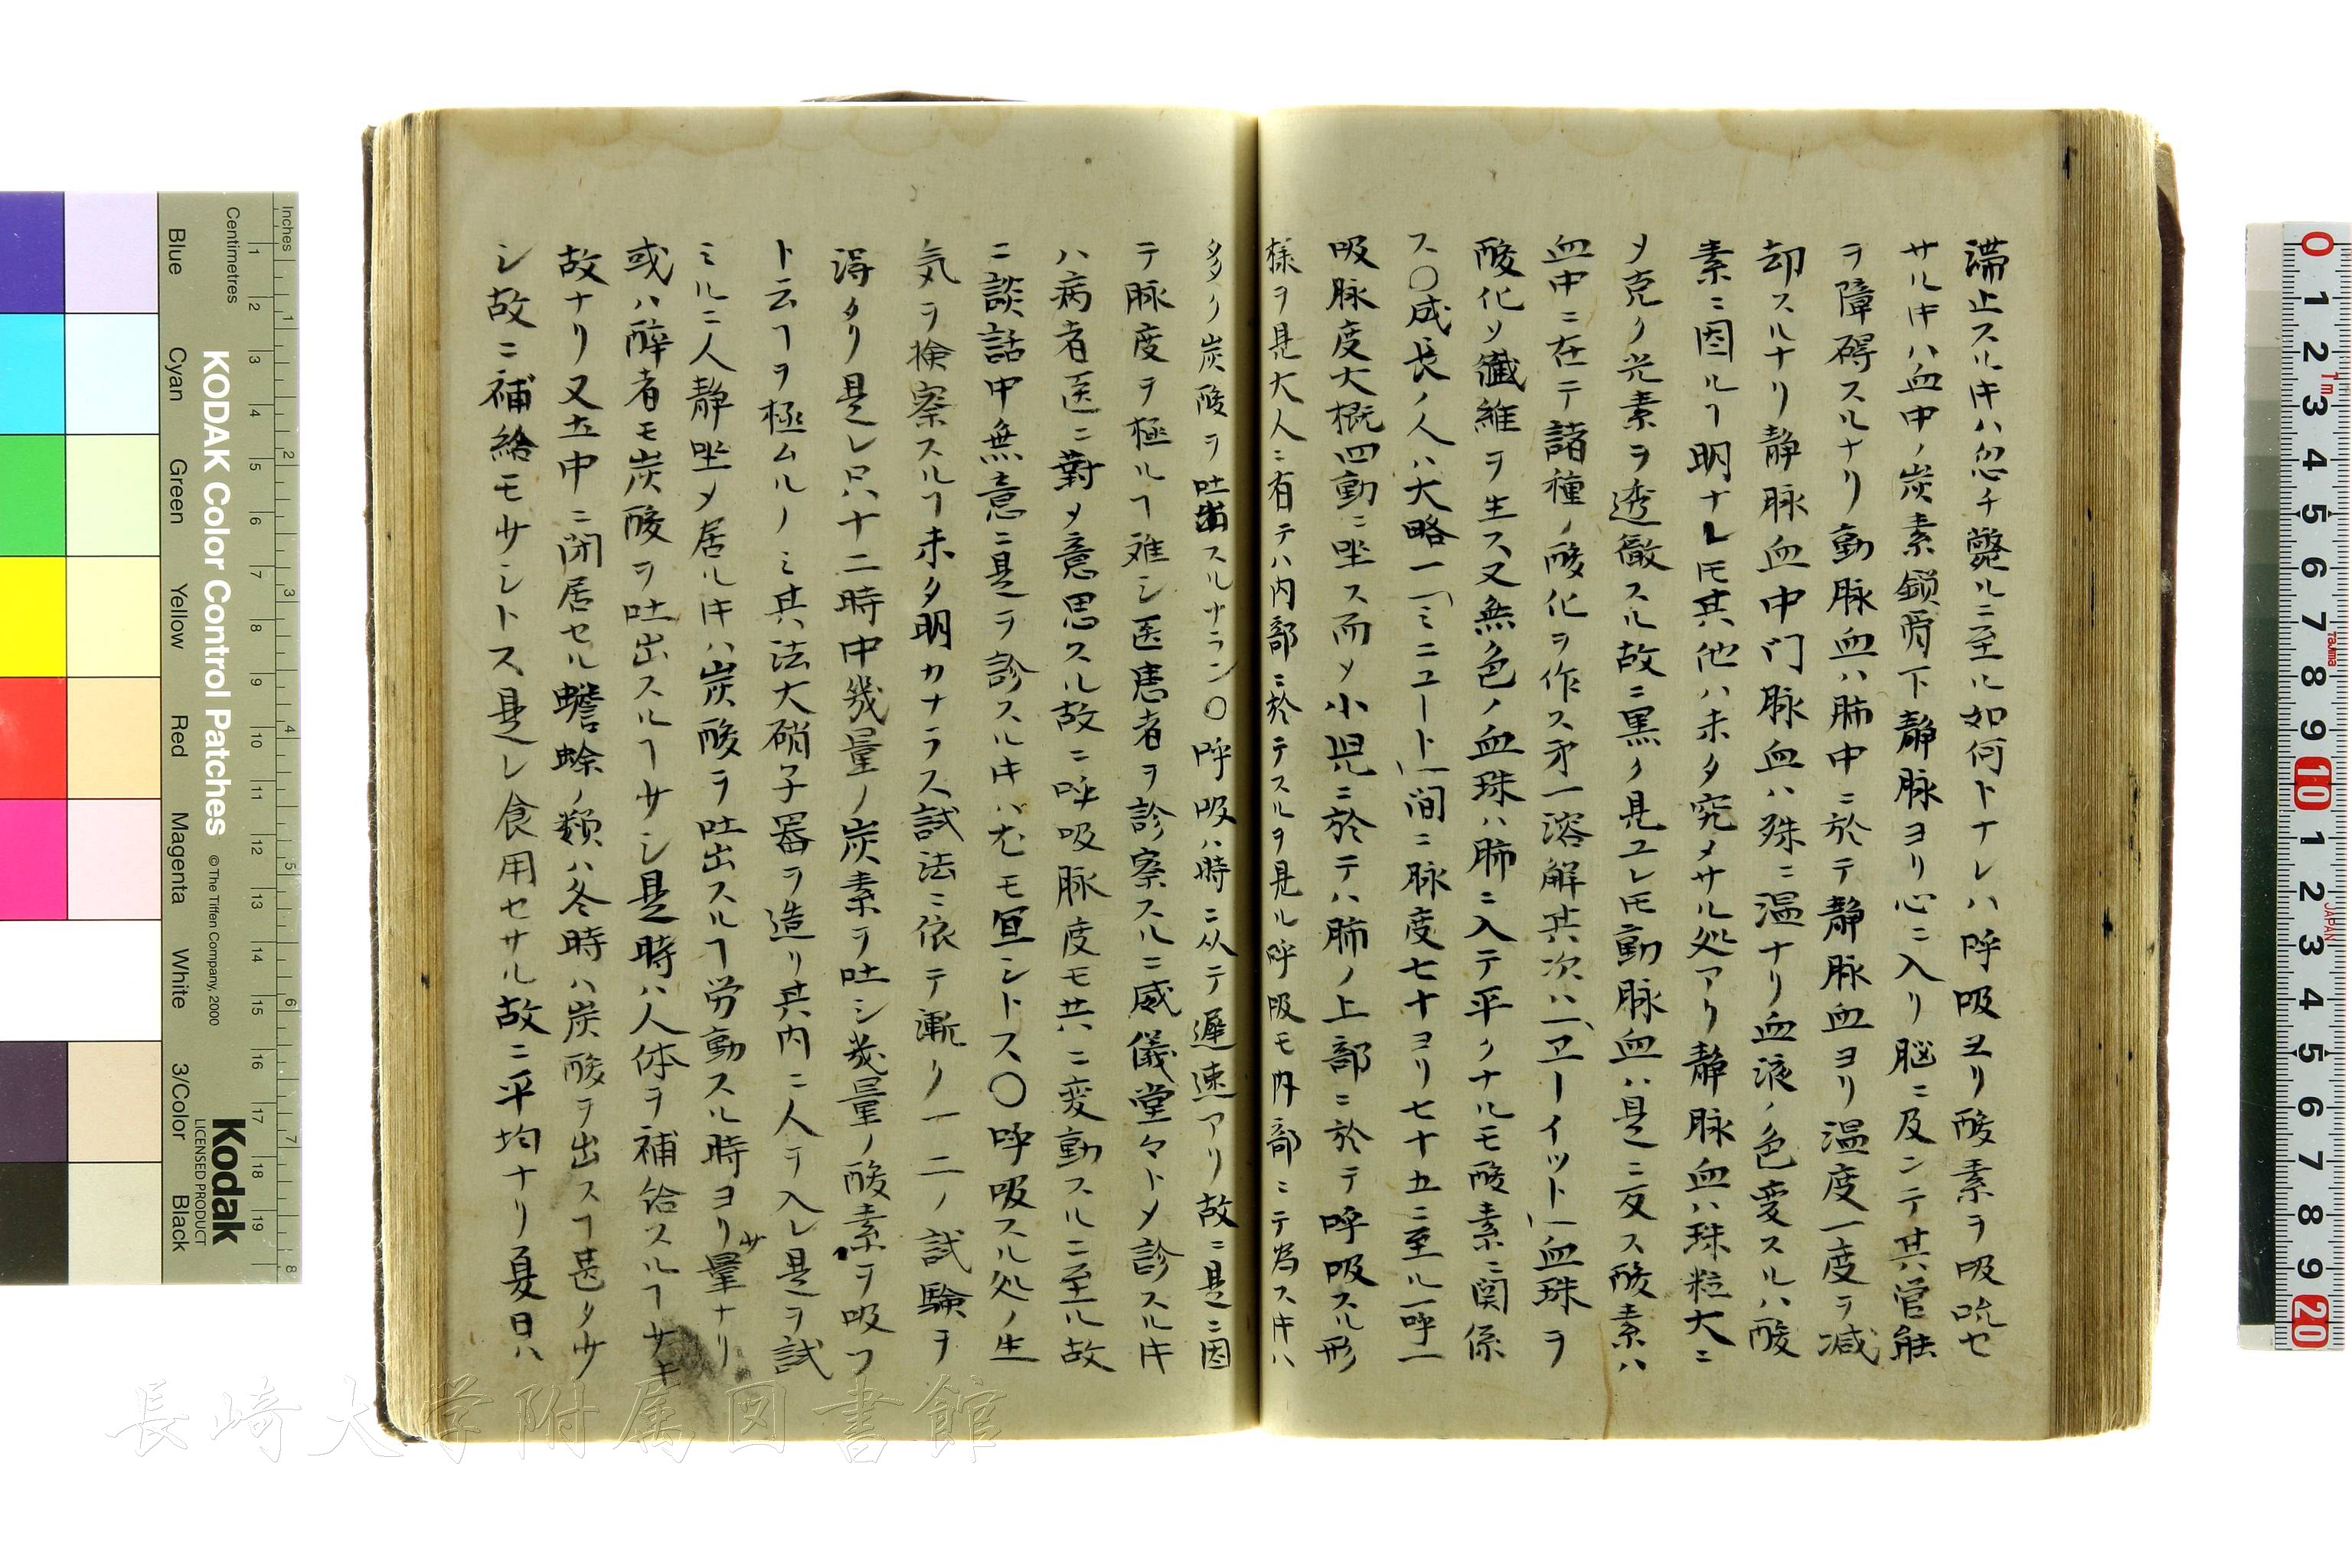 滞止スルキハ忽チ斃ルニ至ル如何トナレハ呼吸ヨリ酸素ヲ吸吮セ
サルキハ血中ノ炭素鎖骨下静脉ヨリ心ニ入リ脳ニ及ンテ其官能
ヲ障碍スルナリ動脉血ハ肺中ニ於テ静脉血ヨリ温度一度ヲ减
却スルナリ静脉血中门脉血ハ殊ニ温ナリ血液ノ色変スルハ酸
素ニ因ルヿ明ナレ𪜈其他ハ未タ究メサル処アリ静脉血ハ珠粒大ニ
〆克ク光素ヲ透徹スル故ニ黒ク見ユレ𪜈動脉血ハ是ニ反ス酸素ハ
血中ニ在テ諸種ノ酸化ヲ作ス才一溶解其次ハ「ヱーイット」血珠ヲ
酸化ソ纖維ヲ生ス又無色ノ血珠ハ肺ニ入テ平クナルモ酸素ニ関係
ス〇成長ノ人ハ大略一「ミニユート」間ニ脉度七十ヨリ七十五ニ至ル一呼一
吸脉度大概四動ニ坐ス而〆小児ニ於テハ肺ノ上部ニ於テ呼吸スル形
様ヲ見大人ニ有テハ内部ニ於テスルヲ見ル呼吸モ内部ニテ為スキハ
多ク炭酸ヲ吐出スルナラン〇呼吸ハ時ニ从テ遲速アリ故ニ是ニ因
テ脉度ヲ極ルヿ难シ医患者ヲ診察スルニ威儀堂々ト〆診スルキ
ハ病者医ニ對〆意思スル故ニ呼吸脉度モ共ニ変動スルニ至ル故
ニ談話中無意ニ是ヲ診スルキバ尤モ宜シトス〇呼吸スル処ノ生
気ヲ検察スルヿ未タ明カナラス試法ニ依テ漸ク一二ノ試験ヲ
得タリ是レ只十二時中幾量ノ炭素ヲ吐シ幾量ノ酸素ヲ吸フ
ト云フヿヲ極ムルノミ其法大硝子器ヲ造リ其内ニ人ヲ入レ是ヲ試
ミルニ人静坐〆居ルキハ炭酸ヲ吐出スルヿ労動スル時ヨリサ量ナリ
或ハ酔者モ炭酸ヲ吐出スルヿサシ是時ハ人体ヲ補給スルヿサキ
故ナリ又土中ニ閉居セル蟾蜍ノ類ハ冬時ハ炭酸ヲ出スヿ甚タサ
シ故ニ補給モサシトス是レ食用セサル故ニ平均ナリ夏日ハ
Blue
Cyan
Green
Yellow
Red
Magenta
White
3/Color
Black
Centimetres
Inches
KODAK Color Control Patches
© The Tiffen Company, 2000
Kodak
LICENSED PRODUCT
長崎大学附属図書館
JAPAN